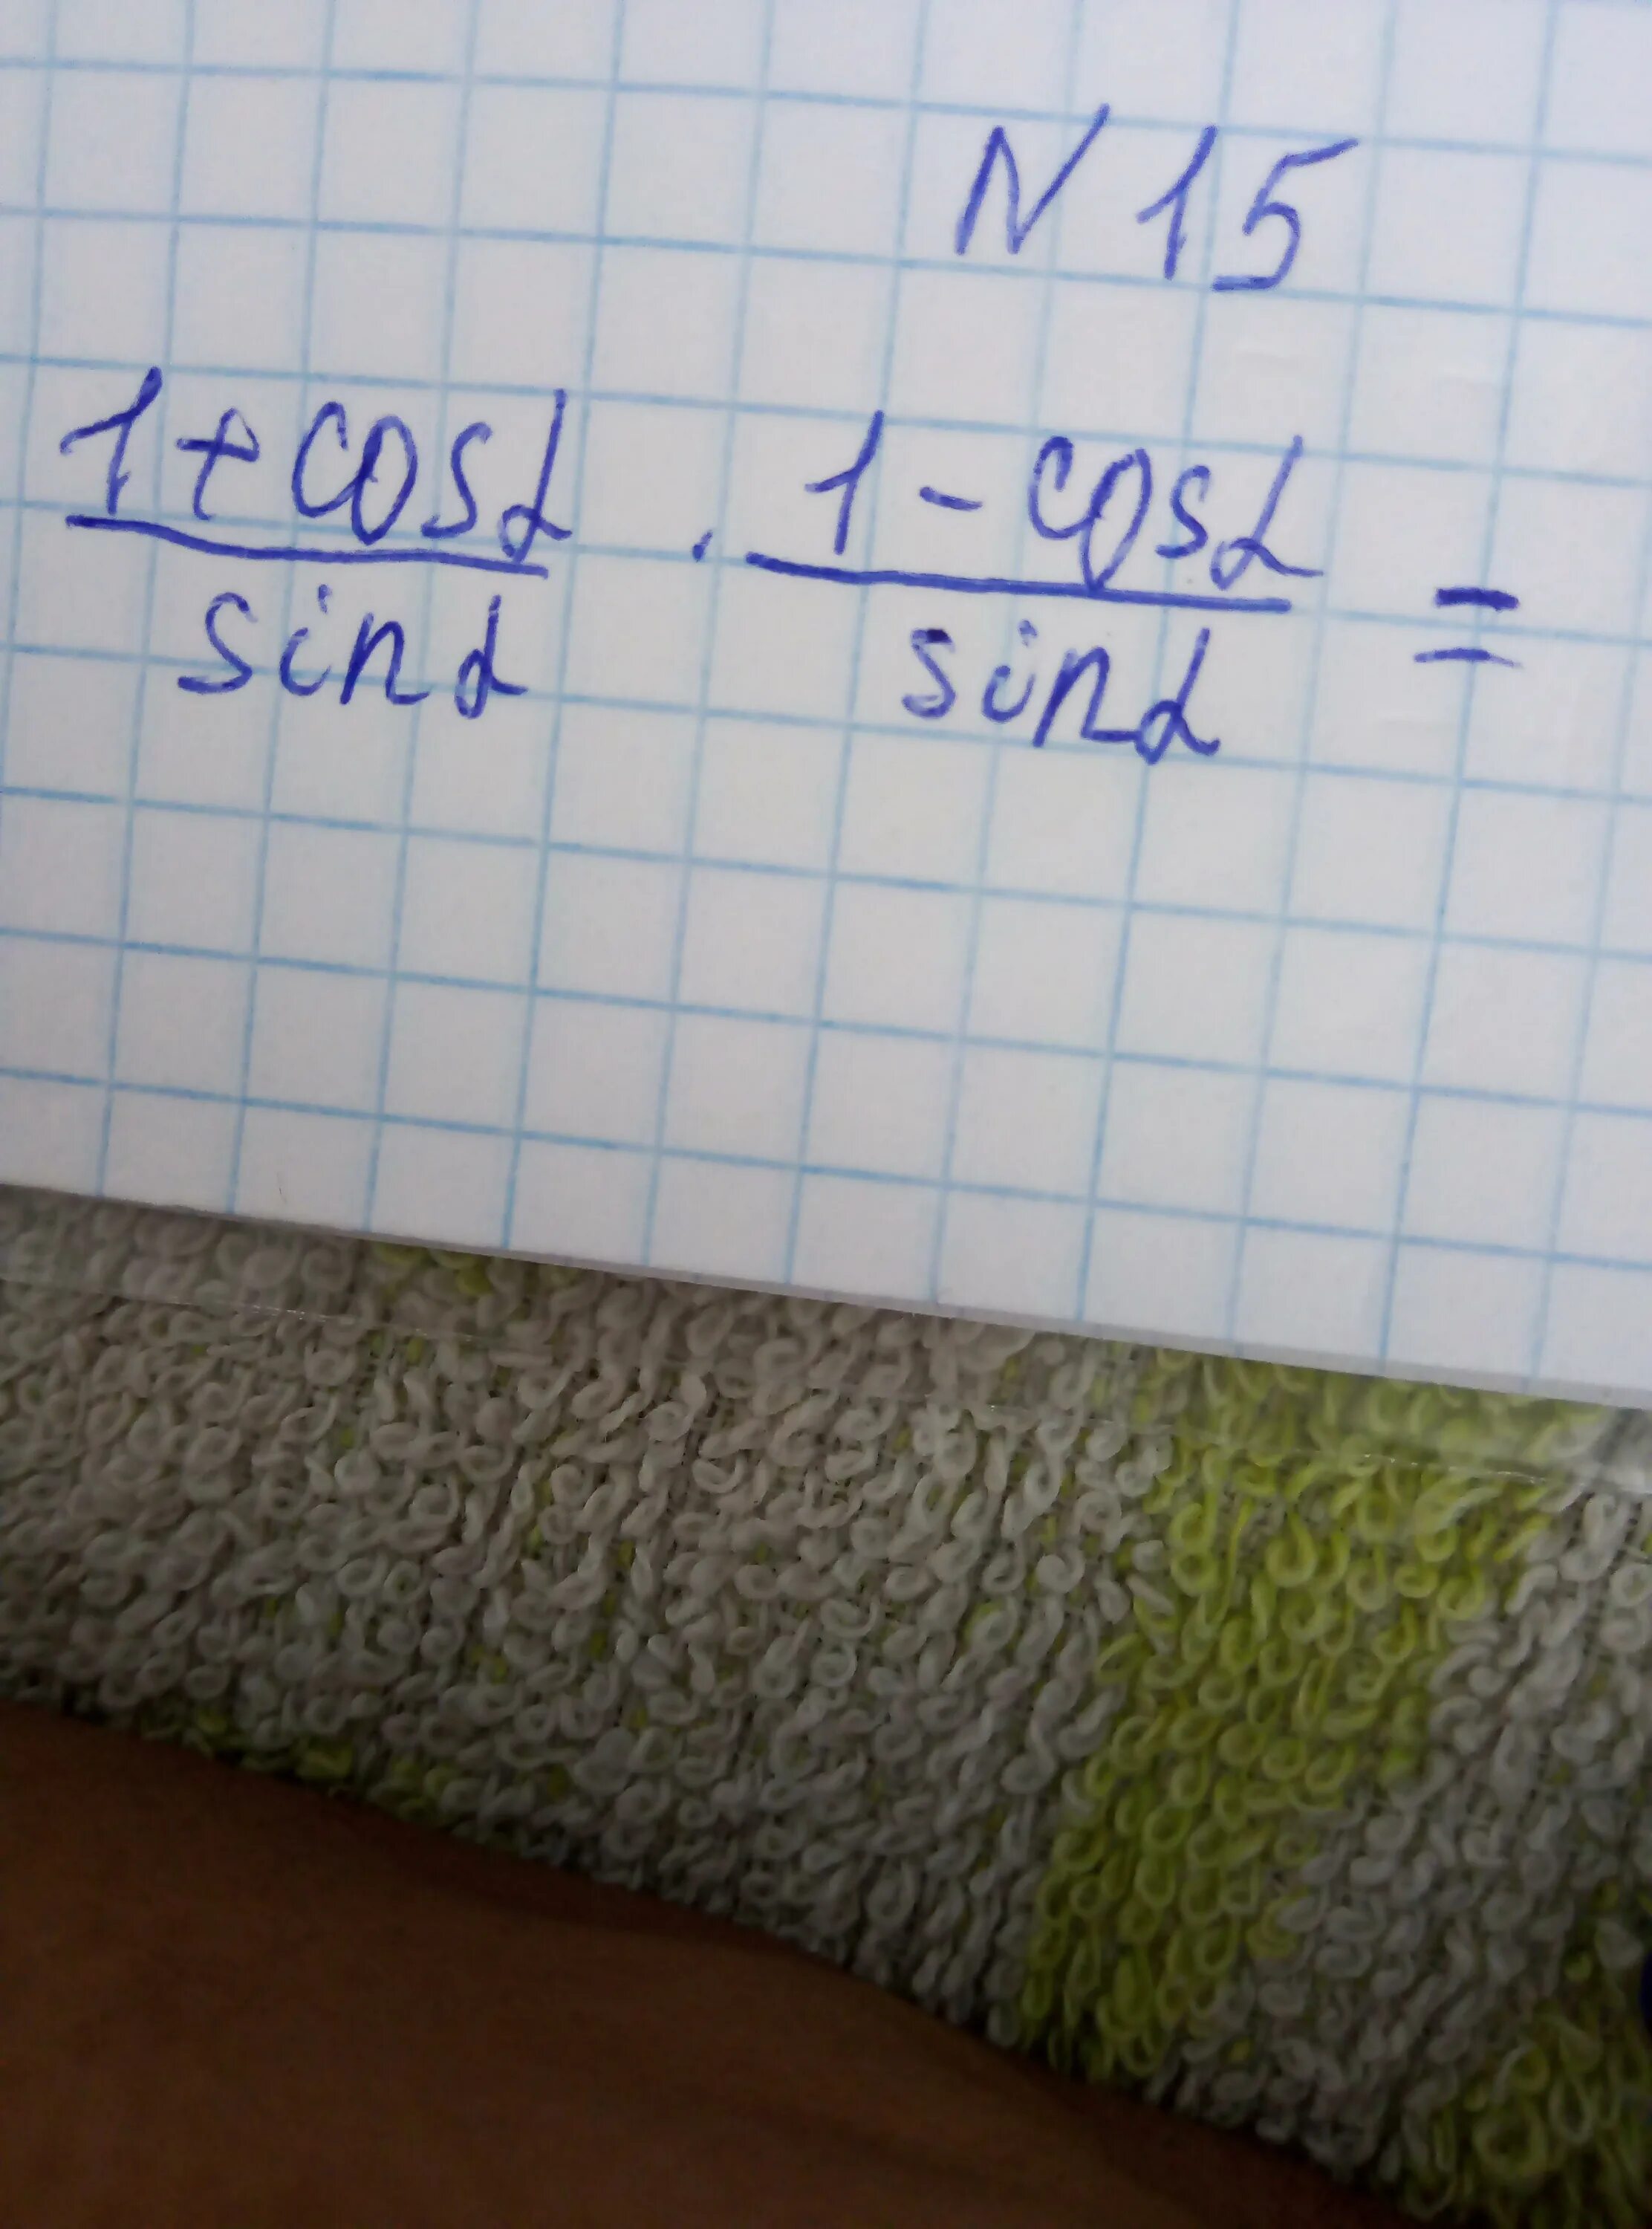 N 15
1+cosα / sinα · 1-cosα / sinα =